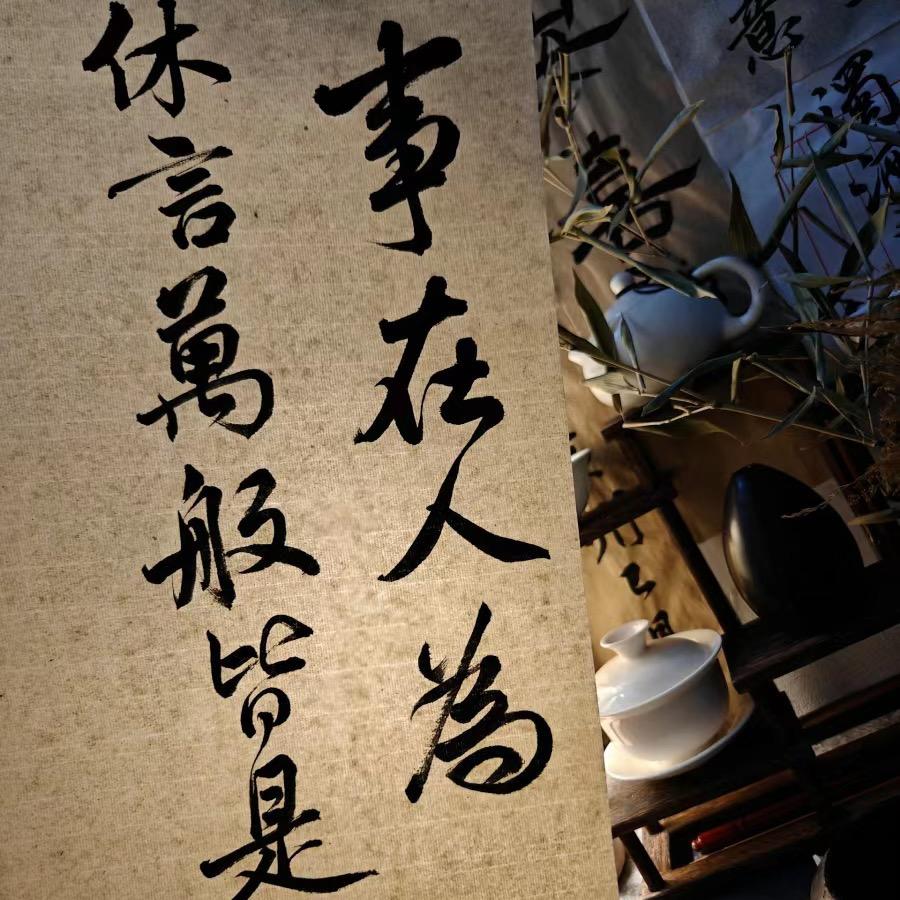 事在人為
休言萬般皆是